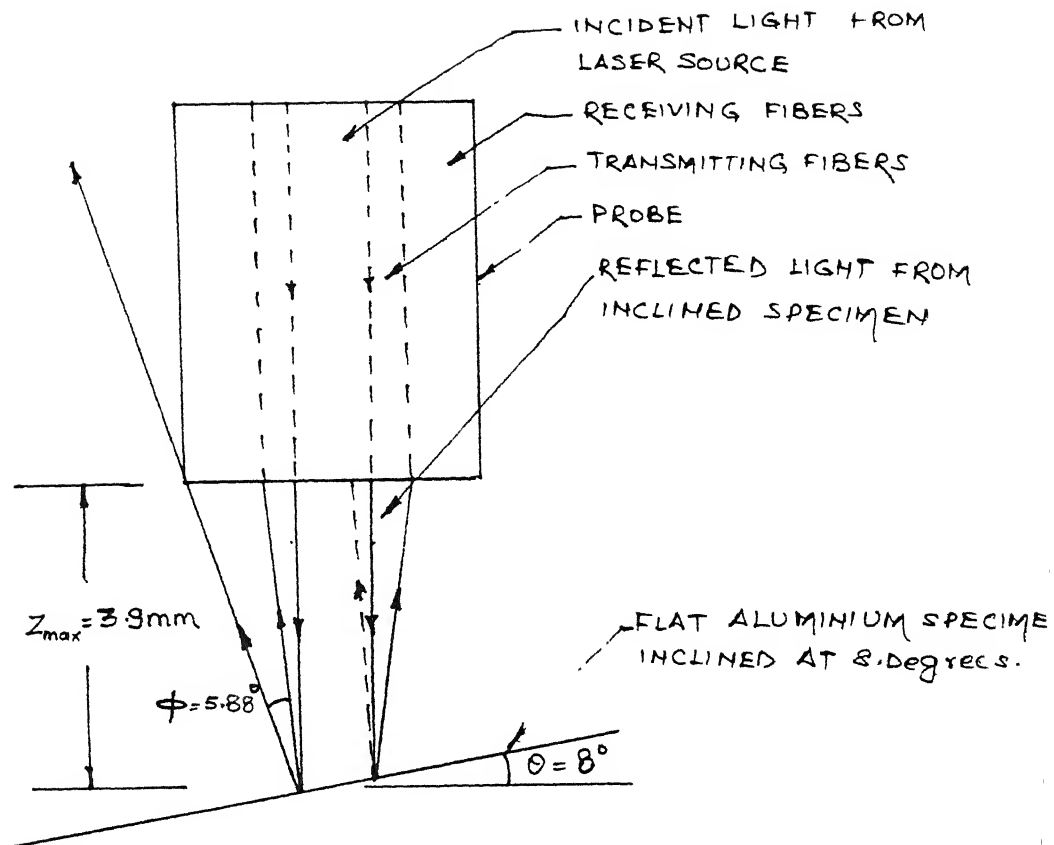 INCIDENT LIGHT FROM
LASER SOURCE
RECEIVING FIBERS
TRANSMITTING FIBERS
PROBE
REFLECTED LIGHT FROM
INCLINED SPECIMEN
Zmax = 3.9mm
ϕ = 5.88°
FLAT ALUMINIUM SPECIME
INCLINED AT 8.Degrees.
θ = 8°